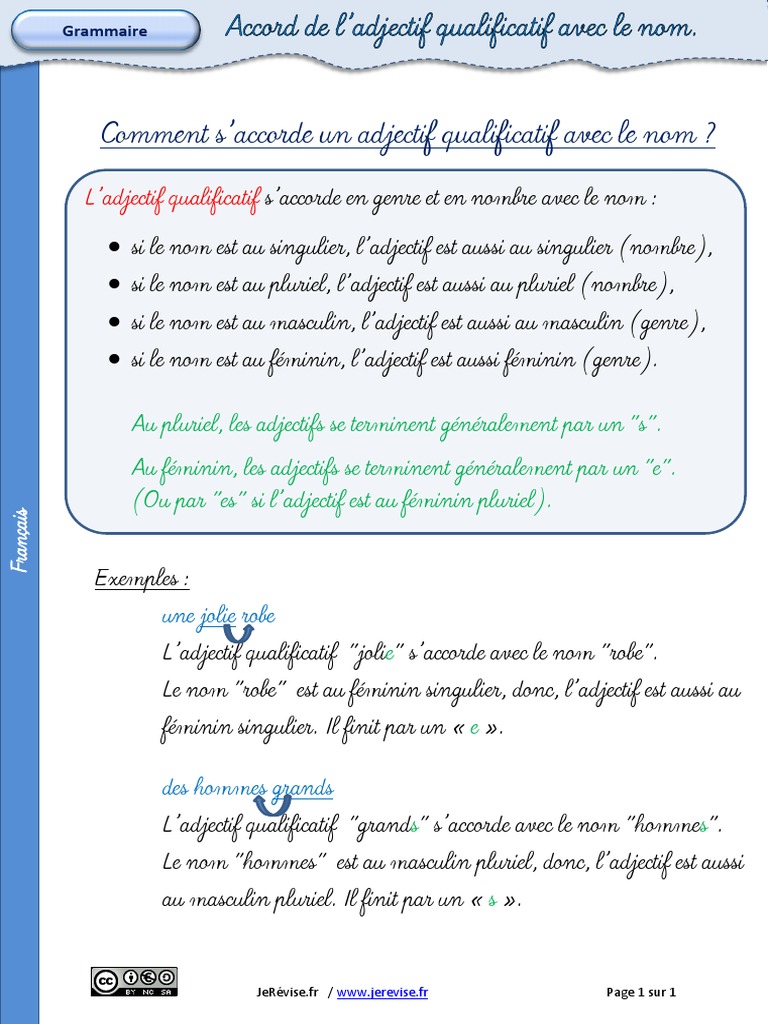 Grammaire
Accord de l'adjectif qualificatif avec le nom.
Comment s'accorde un adjectif qualificatif avec le nom ?
L'adjectif qualificatif s'accorde en genre et en nombre avec le nom :
• si le nom est au singulier, l'adjectif est aussi au singulier (nombre),
• si le nom est au pluriel, l'adjectif est aussi au pluriel (nombre),
• si le nom est au masculin, l'adjectif est aussi au masculin (genre),
• si le nom est au féminin, l'adjectif est aussi féminin (genre).
Au pluriel, les adjectifs se terminent généralement par un "s".
Au féminin, les adjectifs se terminent généralement par un "e".
(Ou par "es" si l'adjectif est au féminin pluriel).
Français
Exemples :
une jolie robe
L'adjectif qualificatif "jolie" s'accorde avec le nom "robe".
Le nom "robe" est au féminin singulier, donc, l'adjectif est aussi au
féminin singulier. Il finit par un « e ».
des hommes grands
L'adjectif qualificatif "grands" s'accorde avec le nom "hommes".
Le nom "hommes" est au masculin pluriel, donc, l'adjectif est aussi
au masculin pluriel. Il finit par un « s ».
cc
BY NC SA
JeRévise.fr / www.jerevise.fr
Page 1 sur 1